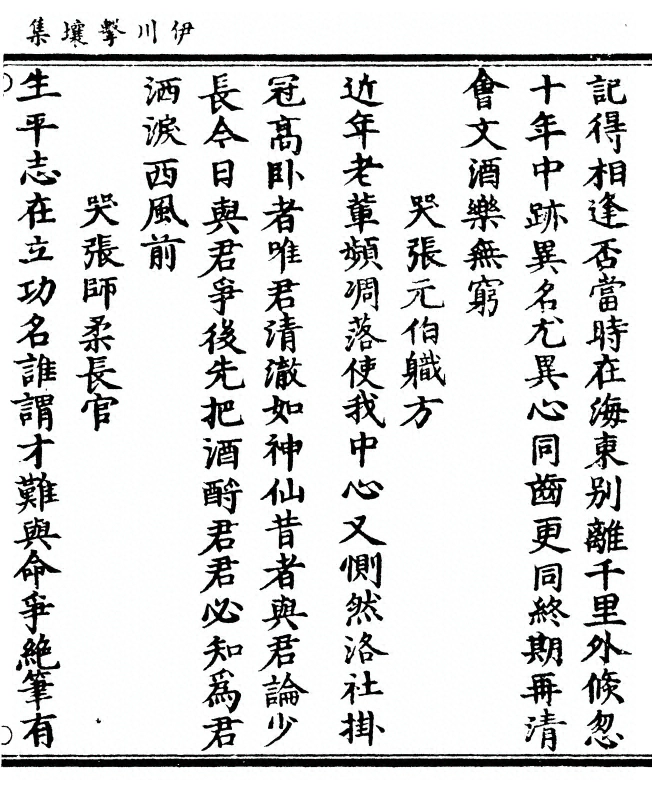 伊川擊壤集
記得相逢否當時在海東别離千里外倐忽
十年中跡異名尤異心同齒更同終期再清
會文酒樂無窮
哭張元伯軄方
近年老輩頻凋落使我中心又惻然洛社掛
冠高卧者唯君清澈如神仙昔者與君論少
長今日與君爭後先把酒酹君君必知爲君
洒淚西風前
哭張師柔長官
生平志在立功名誰謂才難與命爭絶筆有